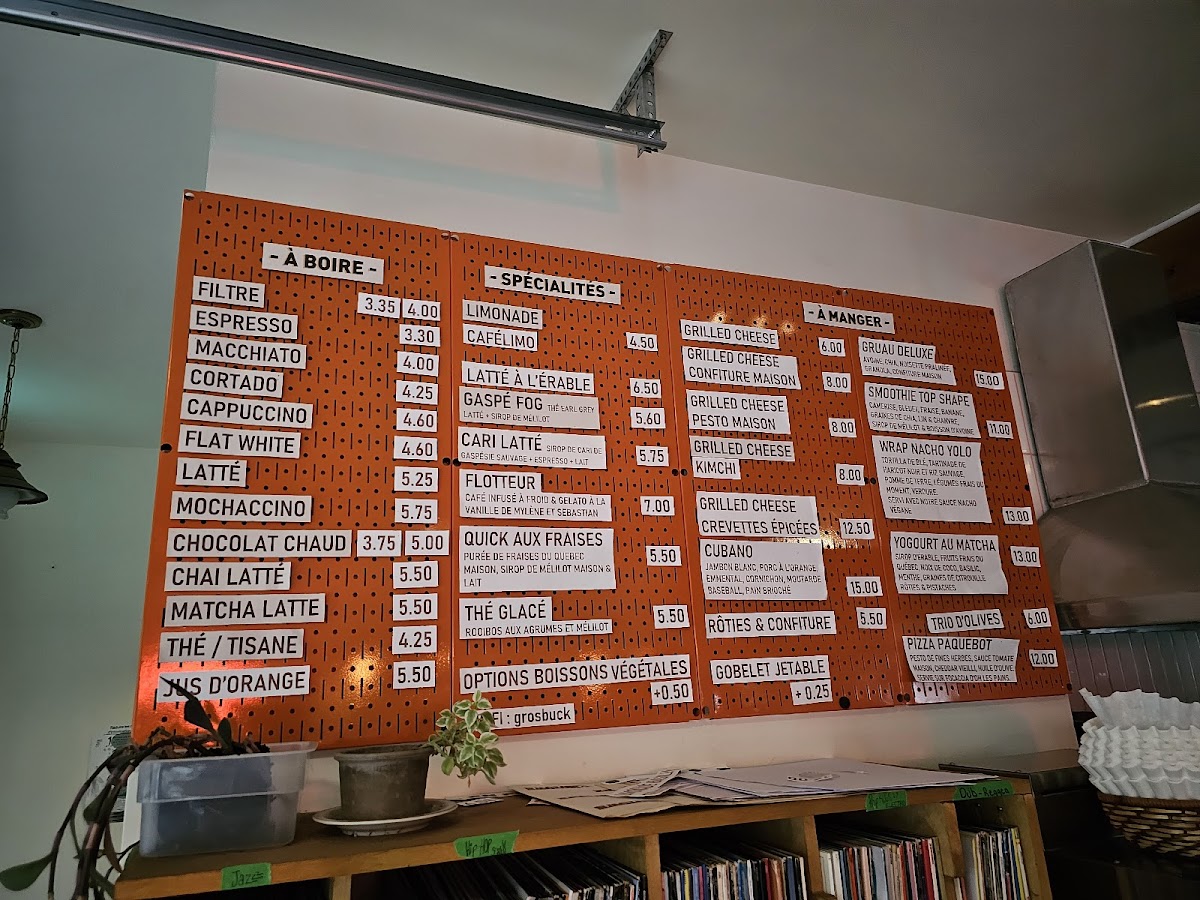 - À BOIRE -
FILTRE 3.35 4.00
ESPRESSO 3.30
MACCHIATO 4.00
CORTADO 4.25
CAPPUCCINO 4.60
FLAT WHITE 4.60
LATTÉ 5.25
MOCHACCINO 5.75
CHOCOLAT CHAUD 3.75 5.00
CHAI LATTÉ 5.50
MATCHA LATTE 5.50
THÉ / TISANE 4.25
JUS D'ORANGE 5.50
- SPÉCIALITÉS -
LIMONADE
CAFÉLIMO 4.50
LATTÉ À L'ÉRABLE 6.50
GASPÉ FOG THÉ EARL GREY
LATTÉ + SIROP DE MÉLILOT 5.60
CARI LATTÉ SIROP DE CARI DE
GASPÉSIE SAUVAGE + ESPRESSO + LAIT 5.75
FLOTTEUR
CAFÉ INFUSÉ À FROID & GELATO À LA
VANILLE DE MYLÈNE ET SEBASTIAN 7.00
QUICK AUX FRAISES
PURÉE DE FRAISES DU QUÉBEC
MAISON, SIROP DE MÉLILOT MAISON &
LAIT 5.50
THÉ GLACÉ
ROOIBOS AUX AGRUMES ET MÉLILOT 5.50
OPTIONS BOISSONS VÉGÉTALES
+0.50
FI : grosbuck
- À MANGER -
GRILLED CHEESE 6.00
GRILLED CHEESE
CONFITURE MAISON 8.00
GRILLED CHEESE
PESTO MAISON 8.00
GRILLED CHEESE
KIMCHI 8.00
GRILLED CHEESE
CREVETTES ÉPICÉES 12.50
CUBANO
JAMBON BLANC, PORC À L'ORANGE
EMMENTAL, CORNICHON, MOUTARDE
BASEBALL, PAIN BRIOCHÉ 15.00
RÔTIES & CONFITURE 5.50
GOBELET JETABLE
+ 0.25
GRUAU DELUXE
AVOINE, CHIA, NOISETTE PRALINÉE,
GRANOLA, CONFITURE MAISON 15.00
SMOOTHIE TOP SHAPE
CAMERISE, BLEUET, FRAISE, BANANE,
GRAINES DE CHIA, LIN & CHANVRE,
SIROP DE MÉLILOT & BOISSON D'AVOINE 11.00
WRAP NACHO YOLO
TORTILLA DE BLÉ, TARTINADE DE
HARICOT NOIR ET RIZ SAUVAGE,
POMME DE TERRE, LÉGUMES FRAIS DU
MOMENT, VERDURE.
SERVI AVEC NOTRE SAUCE NACHO
VEGANE 13.00
YOGOURT AU MATCHA
SIROP D'ÉRABLE, FRUITS FRAIS DU
QUÉBEC, NOIX DE COCO, BASILIC,
MENTHE, GRAINES DE CITROUILLE
RÔTIES & PISTACHES 13.00
TRIO D'OLIVES 6.00
PIZZA PAQUEBOT
PESTO DE FINES HERBES, SAUCE TOMATE
MAISON, CHEDDAR VIEILLI, HUILE D'OLIVE
SERVIE SUR FOCACCIA D'OH LES PAINS 12.00
Jazz